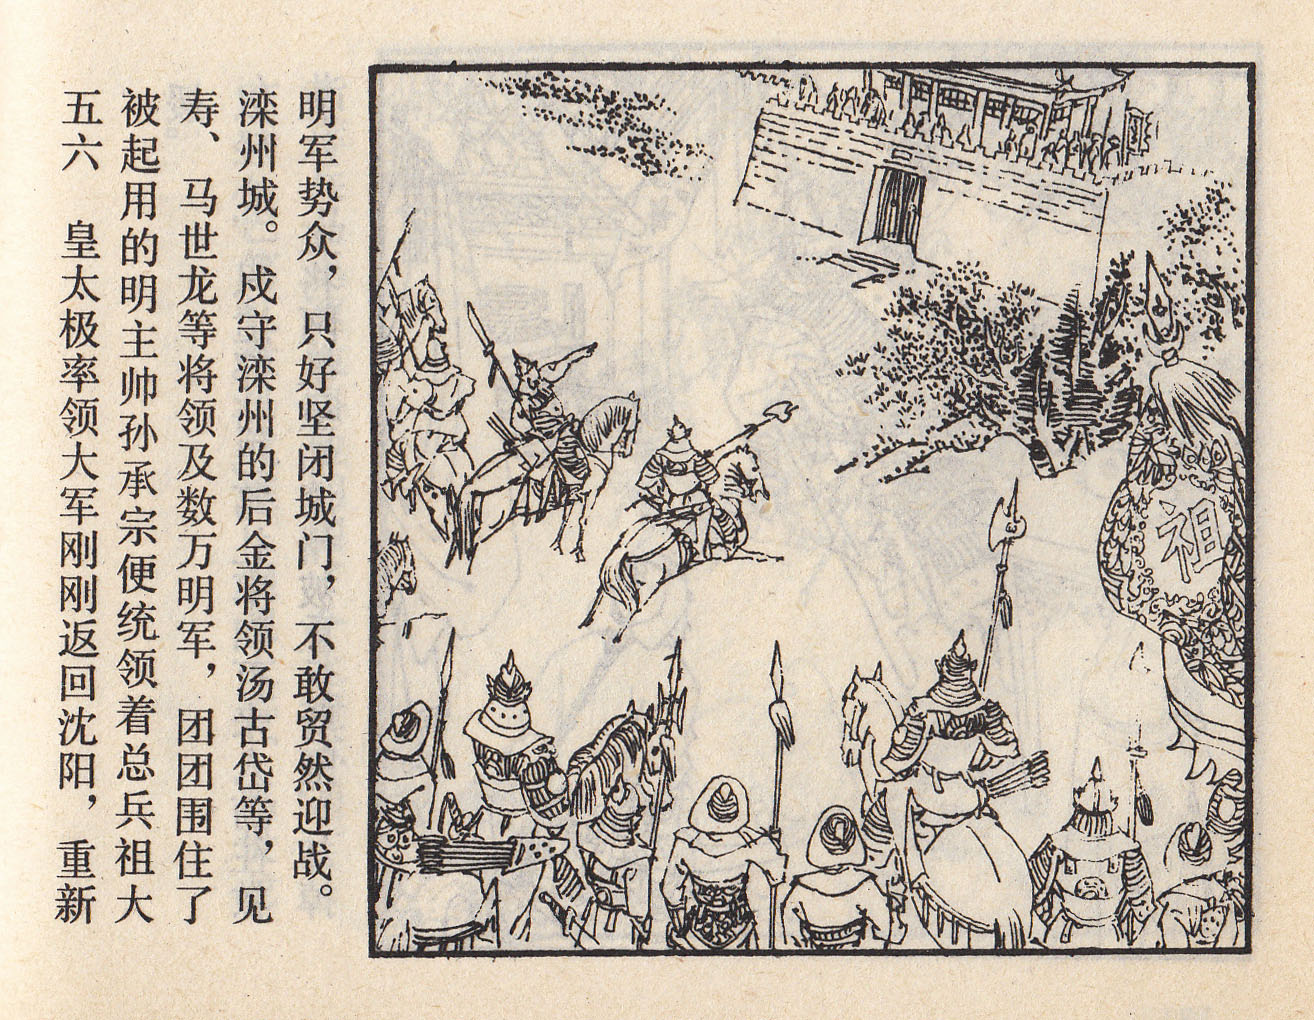 五六 皇太极率领大军刚刚返回沈阳，重新
被起用的明主帅孙承宗便统领着总兵祖大
寿、马世龙等将领及数万明军，团团围住了
滦州城。戍守滦州的后金将领汤古岱等，见
明军势众，只好坚闭城门，不敢贸然迎战。
祖